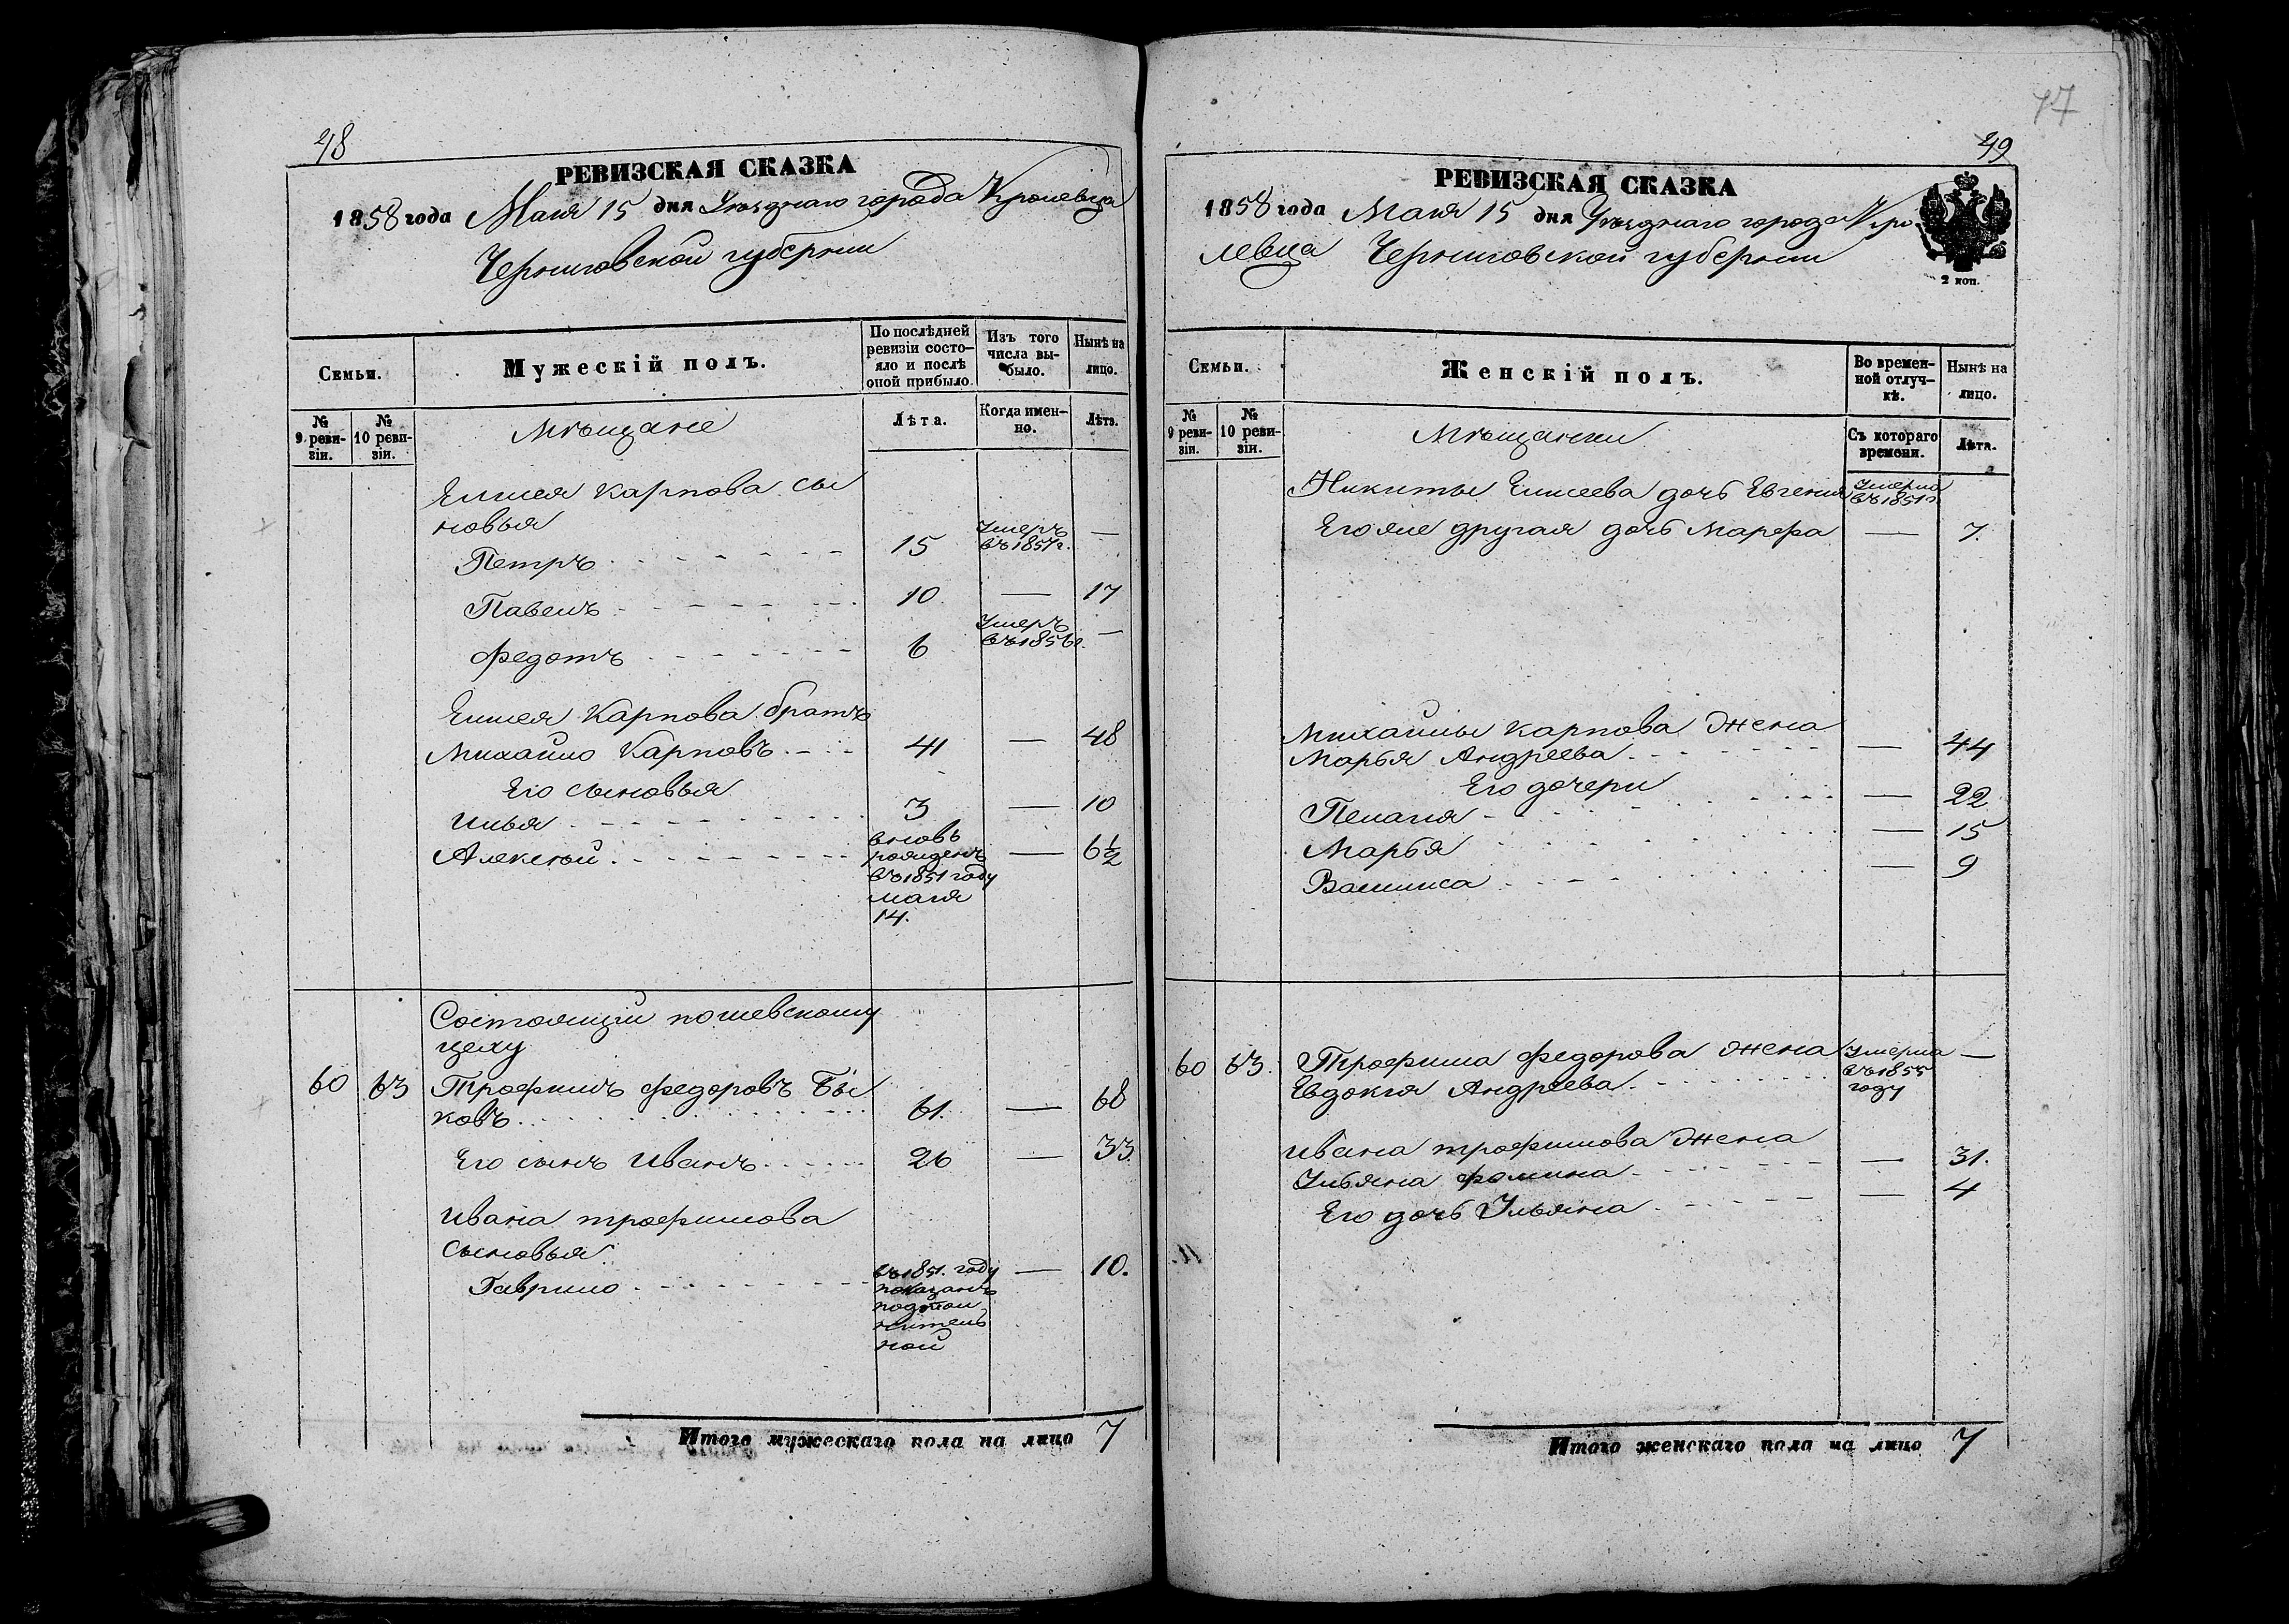 48
РЕВИЗСКАЯ СКАЗКА
1858 года Маія 15 дня Уѣзднаго города Кролевца
Черниговской губерніи
Семьи.
Мужескій полъ.
По послѣдней ревизіи состо-
яло и послѣ оной прибыло.
Изъ того числа вы-
было.
Нынѣ на лицо.
№ 9 реви-
зіи.
№ 10 реви-
зіи.
Мѣщане
Лѣта.
Когда имен-
но.
Лѣта.
Елисея Карпова сы
новья
Петръ 15 Умеръ въ 1857 г. —
Павелъ 10. — 17
Федотъ 6 Умеръ въ 1856 г. —
Елисея Карпова братъ
Михайло Карповъ 41 — 48
Его сыновья
Илья 3 — 10
Алексѣй вновь — 6½
рожденъ
въ 1851 году
маія
14.
Состоящій по шевскому
цеху
60 63 Трофимъ Федоровъ Бы
ковъ 61. — 68
Его сынъ Иванъ 26 — 33.
Ивана Трофимова
сыновья
Гаврило въ 1851. году — 10.
показанъ
ной
Итого мужескаго пола на лицо 7
77
49
РЕВИЗСКАЯ СКАЗКА
1858 года Маія 15 дня Уѣзднаго города Кро
левца Черниговской губерніи
2 коп.
Семьи.
Женскій полъ.
Во времен-
ной отлуч-
кѣ.
Нынѣ на лицо.
№ 9 реви-
зіи.
№ 10 реви-
зіи.
Мѣщанки
Съ котораго времени.
Лѣта.
Никиты Елисеева дочь Евгенія Умерла въ 1851 г.
Его же другая дочь Марфа — 7.
Михайлы Карпова жена
Марья Андреева — 44
Его дочери
Пелагія — 22
Марья — 15
Василиса — 9
60 63. Трофима Федорова жена Умерла —
Евдокія Андреева въ 1855
году
Ивана Трофимова жена
Ульяна Фомина — 31.
Его дочь Ульяна — 4
Итого женскаго пола на лицо 7